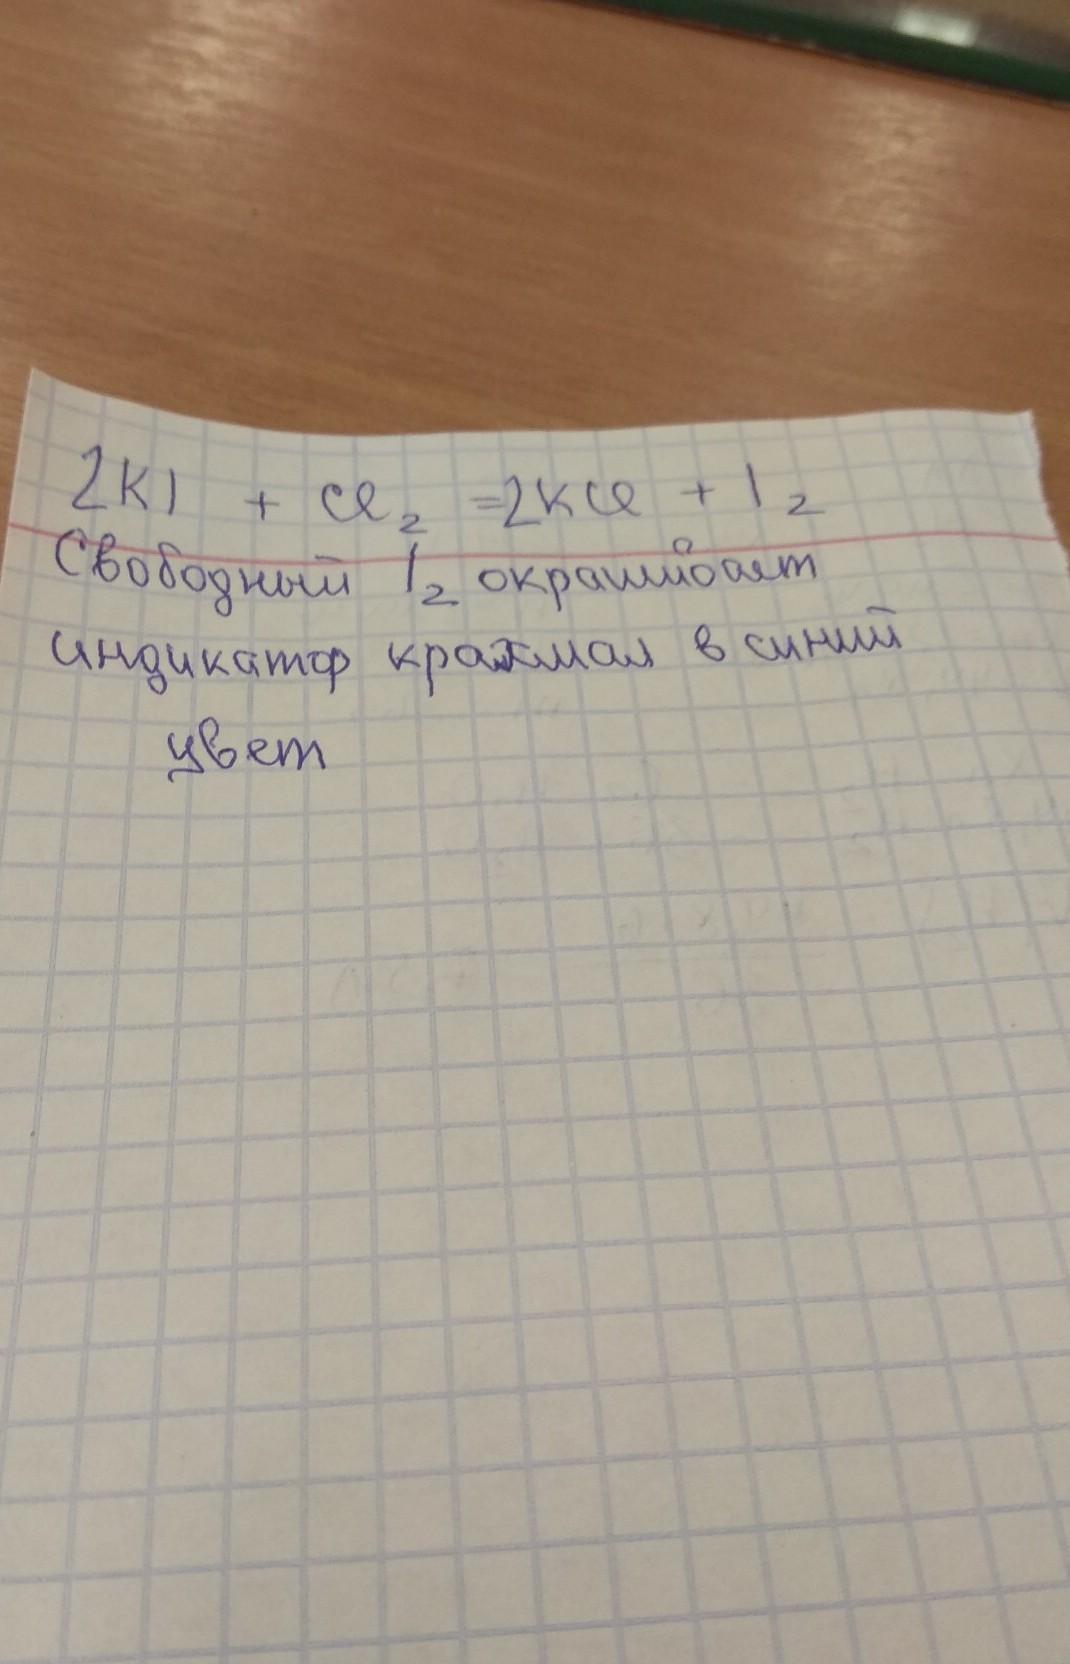 2KI + Cl₂ = 2KCl + I₂
Свободный I₂ окрашивает
индикатор крахмал в синий
цвет